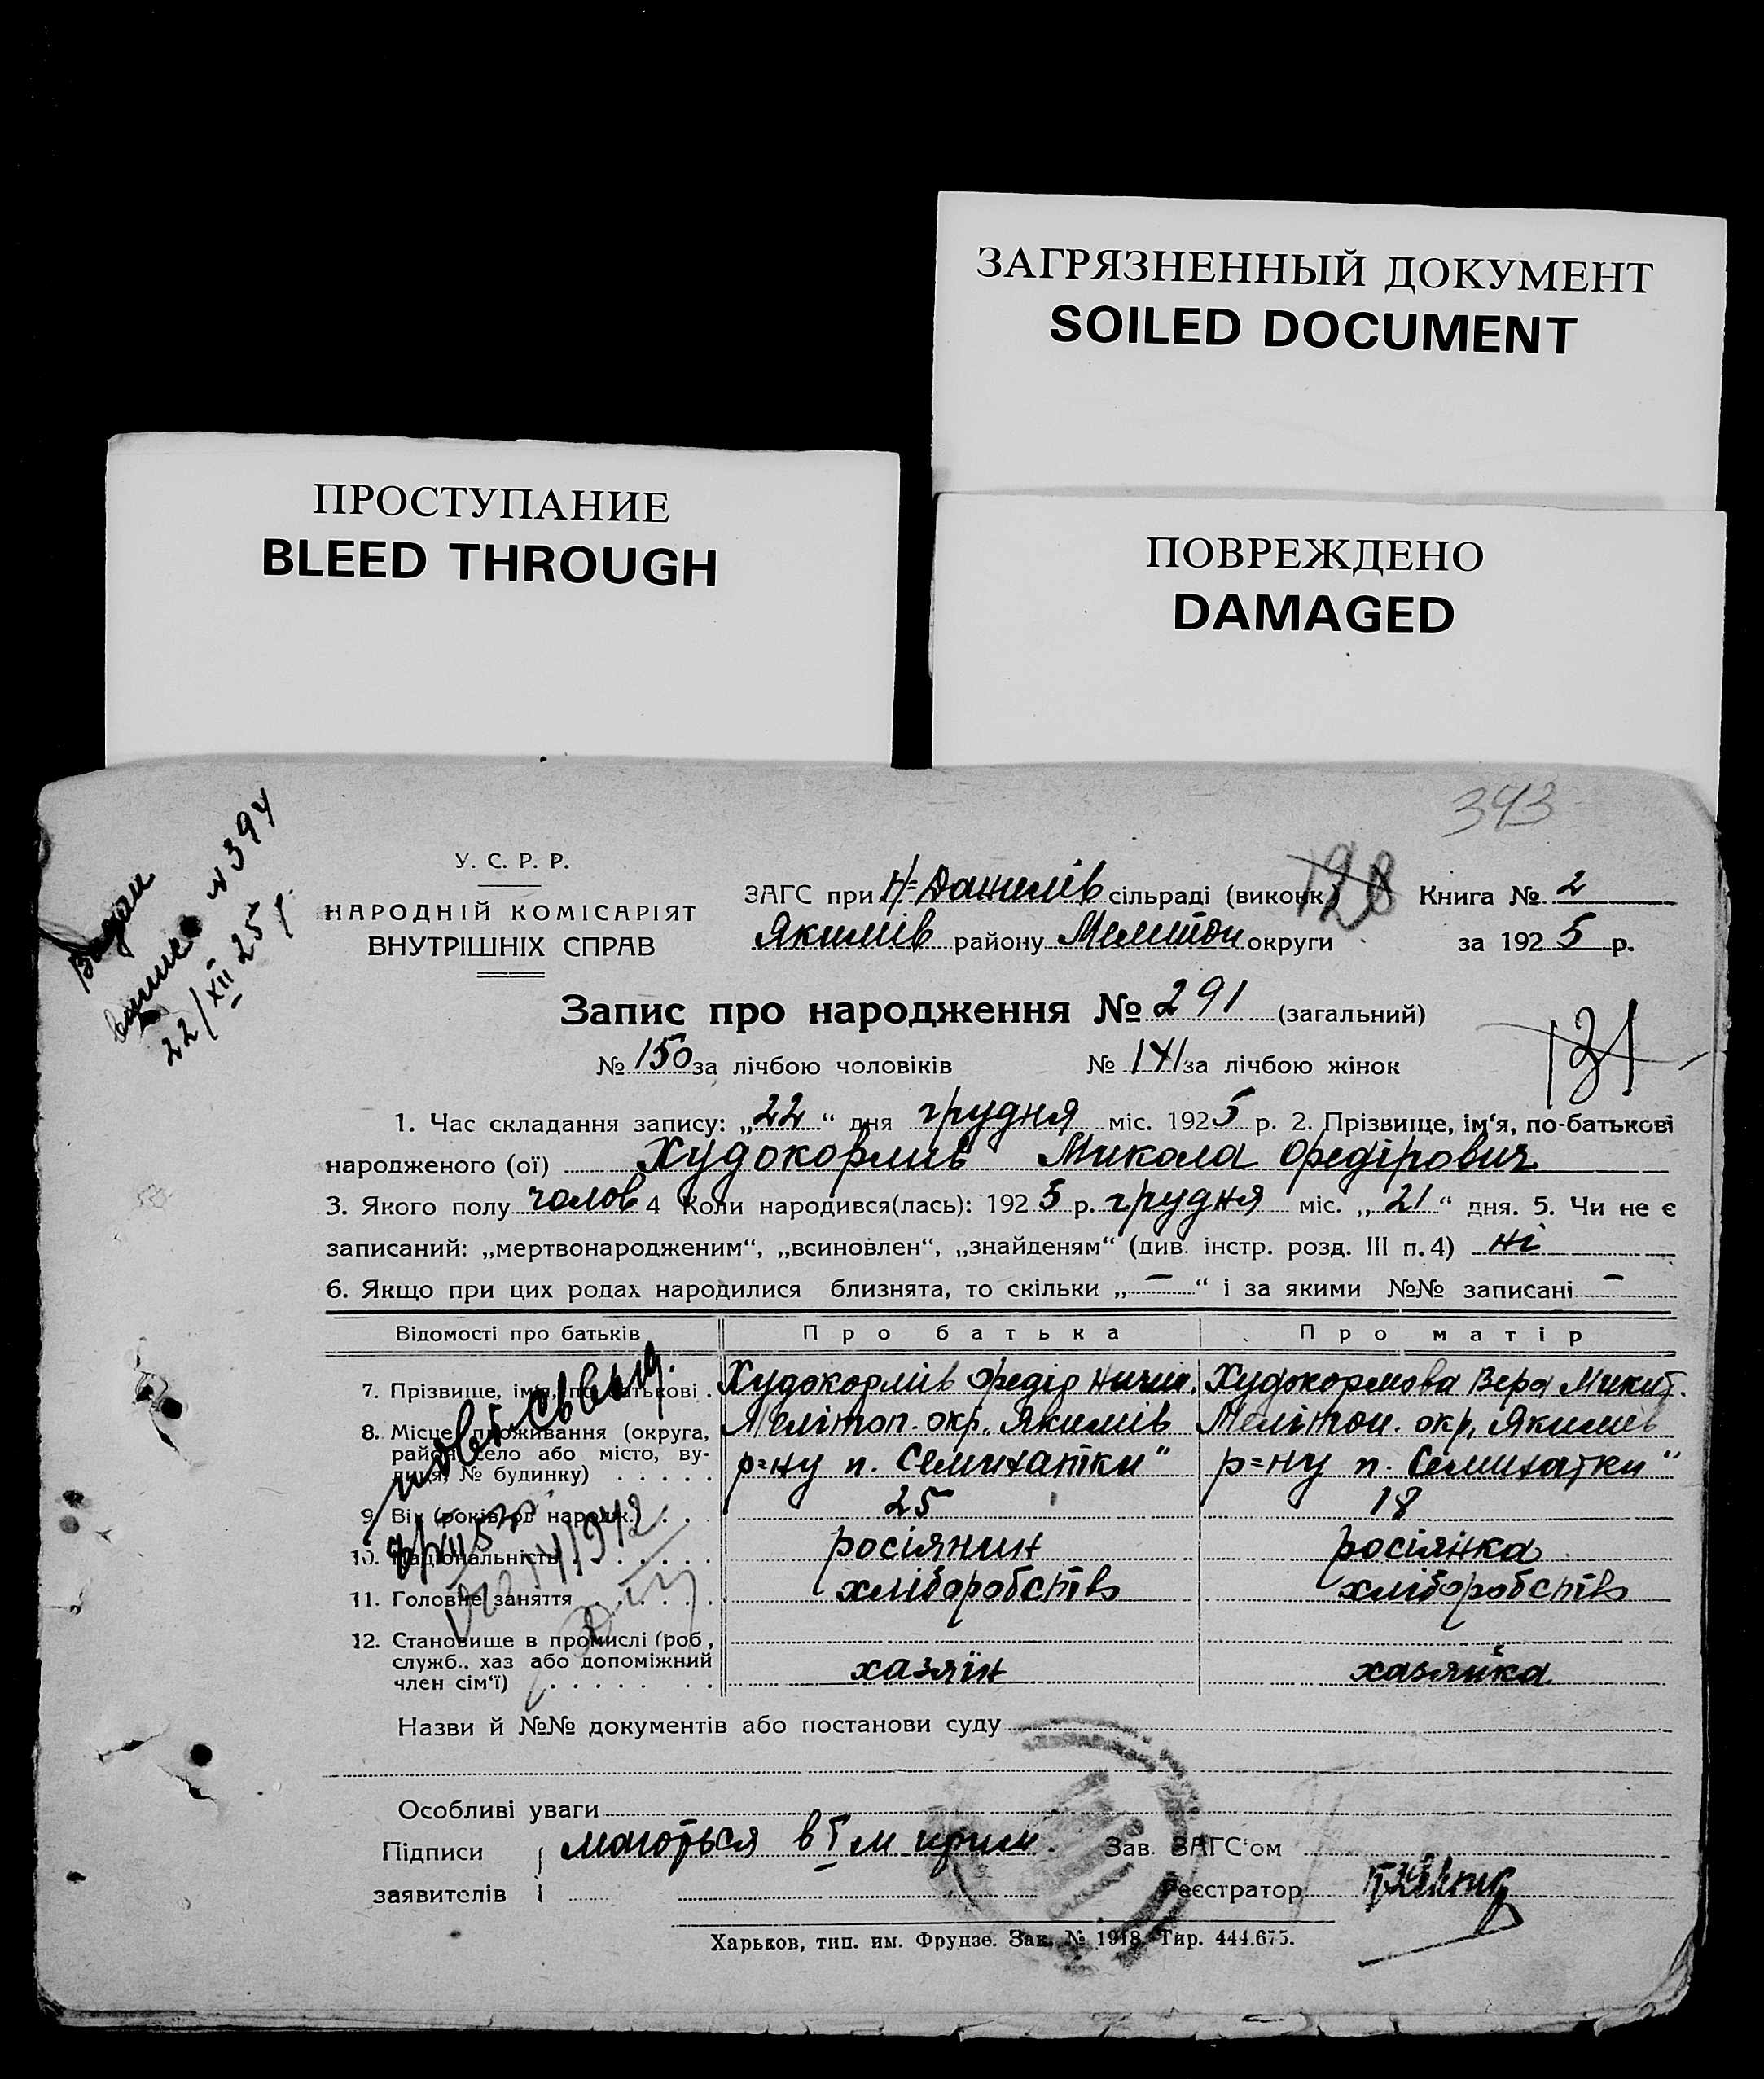 ЗАГРЯЗНЕННЫЙ ДОКУМЕНТ
SOILED DOCUMENT
ПРОСТУПАНИЕ
BLEED THROUGH
ПОВРЕЖДЕНО
DAMAGED
343
Видан
выписъ N 394
22/XII 25 р.
У. С. Р. Р.
НАРОДНІЙ КОМІСАРІЯТ
ВНУТРІШНІХ СПРАВ
ЗАГС при Н=Данилів сільраді (виконк.) 128 Книга № 2
Якимів району Мелитоп округи за 1925 р.
Запис про народження № 291 (загальний)
131
№ 150 за лічбою чоловіків № 141 за лічбою жінок
1. Час складання запису: „22“ дня грудня міс. 1925 р. 2. Прізвище, ім‘я, по-батькові
народженого (ої) Худокормив Микола Федірович
3. Якого полу чолов 4 Коли народився(лась): 1925 р. грудня міс. „21“ дня. 5. Чи не є
записаний: „мертвонародженим“, „всиновлен“, „знайденям“ (див. інстр. розд. III п. 4) ні
6. Якщо при цих родах народилися близнята, то скільки „—“ і за якими №№ записані —
Відомості про батьків Про батька Про матір
7. Прізвище, ім‘я, по батькові . Худокормів Федір Ничип. Худокормова Вера Микит.
8. Місце проживання (округа, Мелітоп. окр., Якимів Мелітоп. окр., Якимів
район, село або місто, ву-
лиця, № будинку) . . . . . р=ну п. Семихатки" р=ну п. Семихатки"
9. Вік (років од народж.) . . . 25 18
10. Національність . . . . . росіянин росіянка
11. Головне заняття . . . . . . хліборобств хліборобств
12. Становище в промислі (роб.,
служб., хаз або допоміжний
член сім‘ї) . . . . . . . . хазяїн хазяйка
Назви й №№ документів або постанови суду
Особливі уваги
Підписи маються в І м прим. Зав. ЗАГС‘ом
заявителів Реєстратор
Харьков, тип. им. Фрунзе. Зак. № 1918. Тир. 444.675.